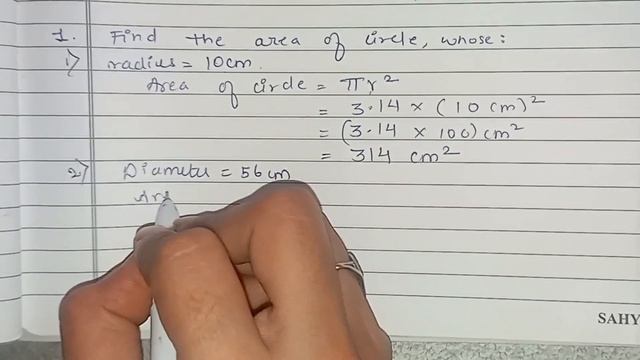 1. Find the area of circle, whose:
i) radius = 10cm.
Area of circle = πr²
= 3.14 × (10 cm)²
= (3.14 × 100) cm²
= 314 cm²
2) Diameter = 56cm
Are
SAHY